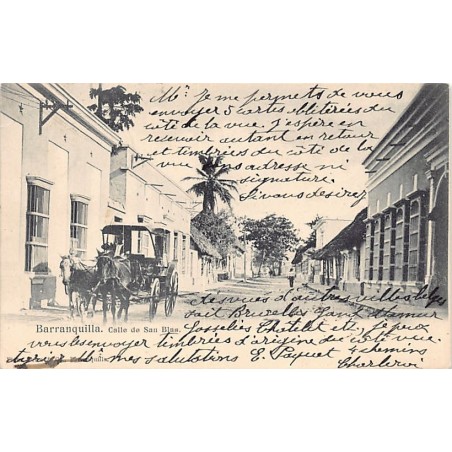 Mr. Je me permets de vous
envoyer 5 cartes oblitérées du
côté de la vue. J'espère en
recevoir autant en retour
et timbrées du côté de la
vue sans adresse ni
signature.
Si vous désirez
des vues d'autres villes belges
soit Bruxelles Gand Namur
Barranquilla. Calle de San Blas.
Gosselies Chatelet etc, je peux
vous les envoyer timbrées d'origine du côté vue.
mes salutations E. Paquet 4 chemins
Charleroi